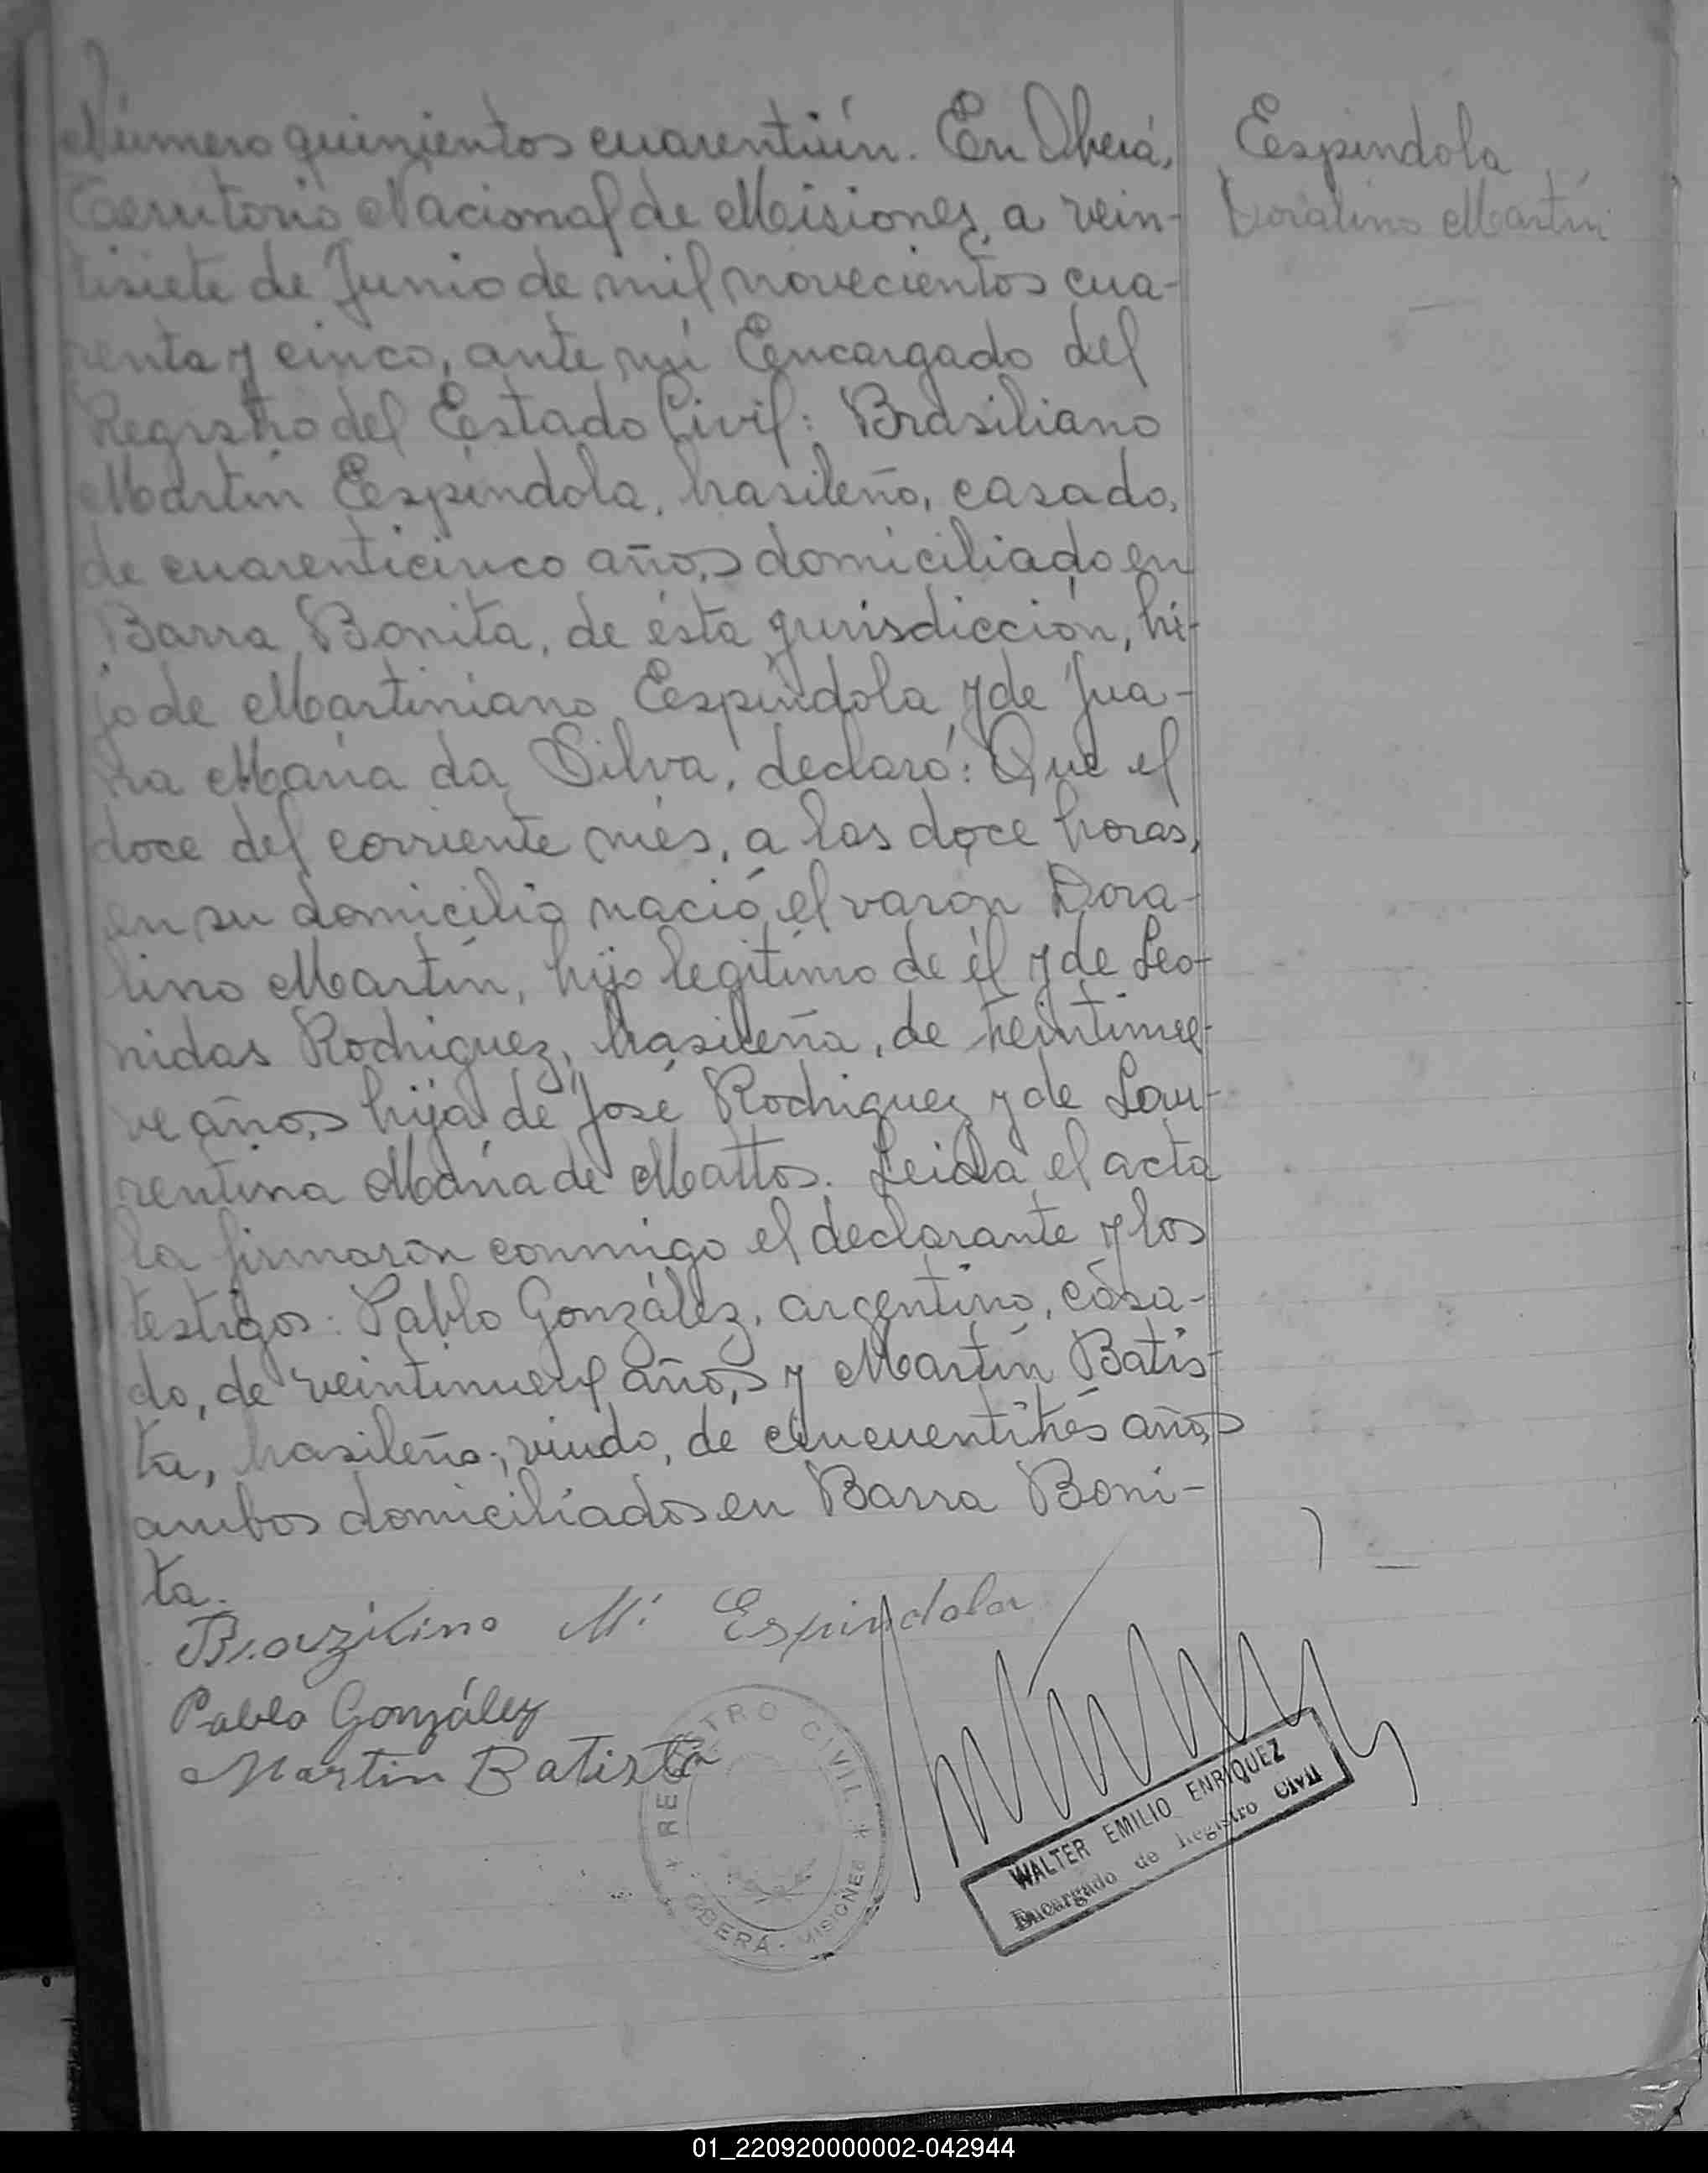 Número quinientos cuarentiún. En Oberá,
Territorio Nacional de Misiones, a vein-
tisiete de Junio de mil novecientos cua-
renta y cinco, ante mí Encargado del
Registro del Estado Civil: Brasiliano
Martín Espíndola, brasileño, casado,
de cuarenticinco años, domiciliado en
Barra Bonita, de ésta jurisdicción, hi-
jo de Martiniano Espíndola y de Jua-
na María da Silva, declaró: Que el
doce del corriente més, a las doce horas,
en su domicilio nació el varón Dora-
lino Martín, hijo legítimo de él y de Leo-
nidas Rodriguez, brasileña, de treintinue-
ve años, hija de José Rodriguez y de Lau-
rentina María de Mattos. Leida el acta
la firmaron conmigo el declarante y los
testigos: Pablo González, argentino, casa-
do, de veintinueve años, y Martín Batis-
ta, brasileño, viudo, de cincuentitrés años,
ambos domiciliados en Barra Boni-
ta.
Espíndola
Doralino Martín
Brazilino M. Espindola
Pablo González
Martin Batista
REGISTRO CIVIL
* OBERÁ - MISIONES *
WALTER EMILIO ENRIQUEZ
Encargado de Registro Civil
01_220920000002-042944